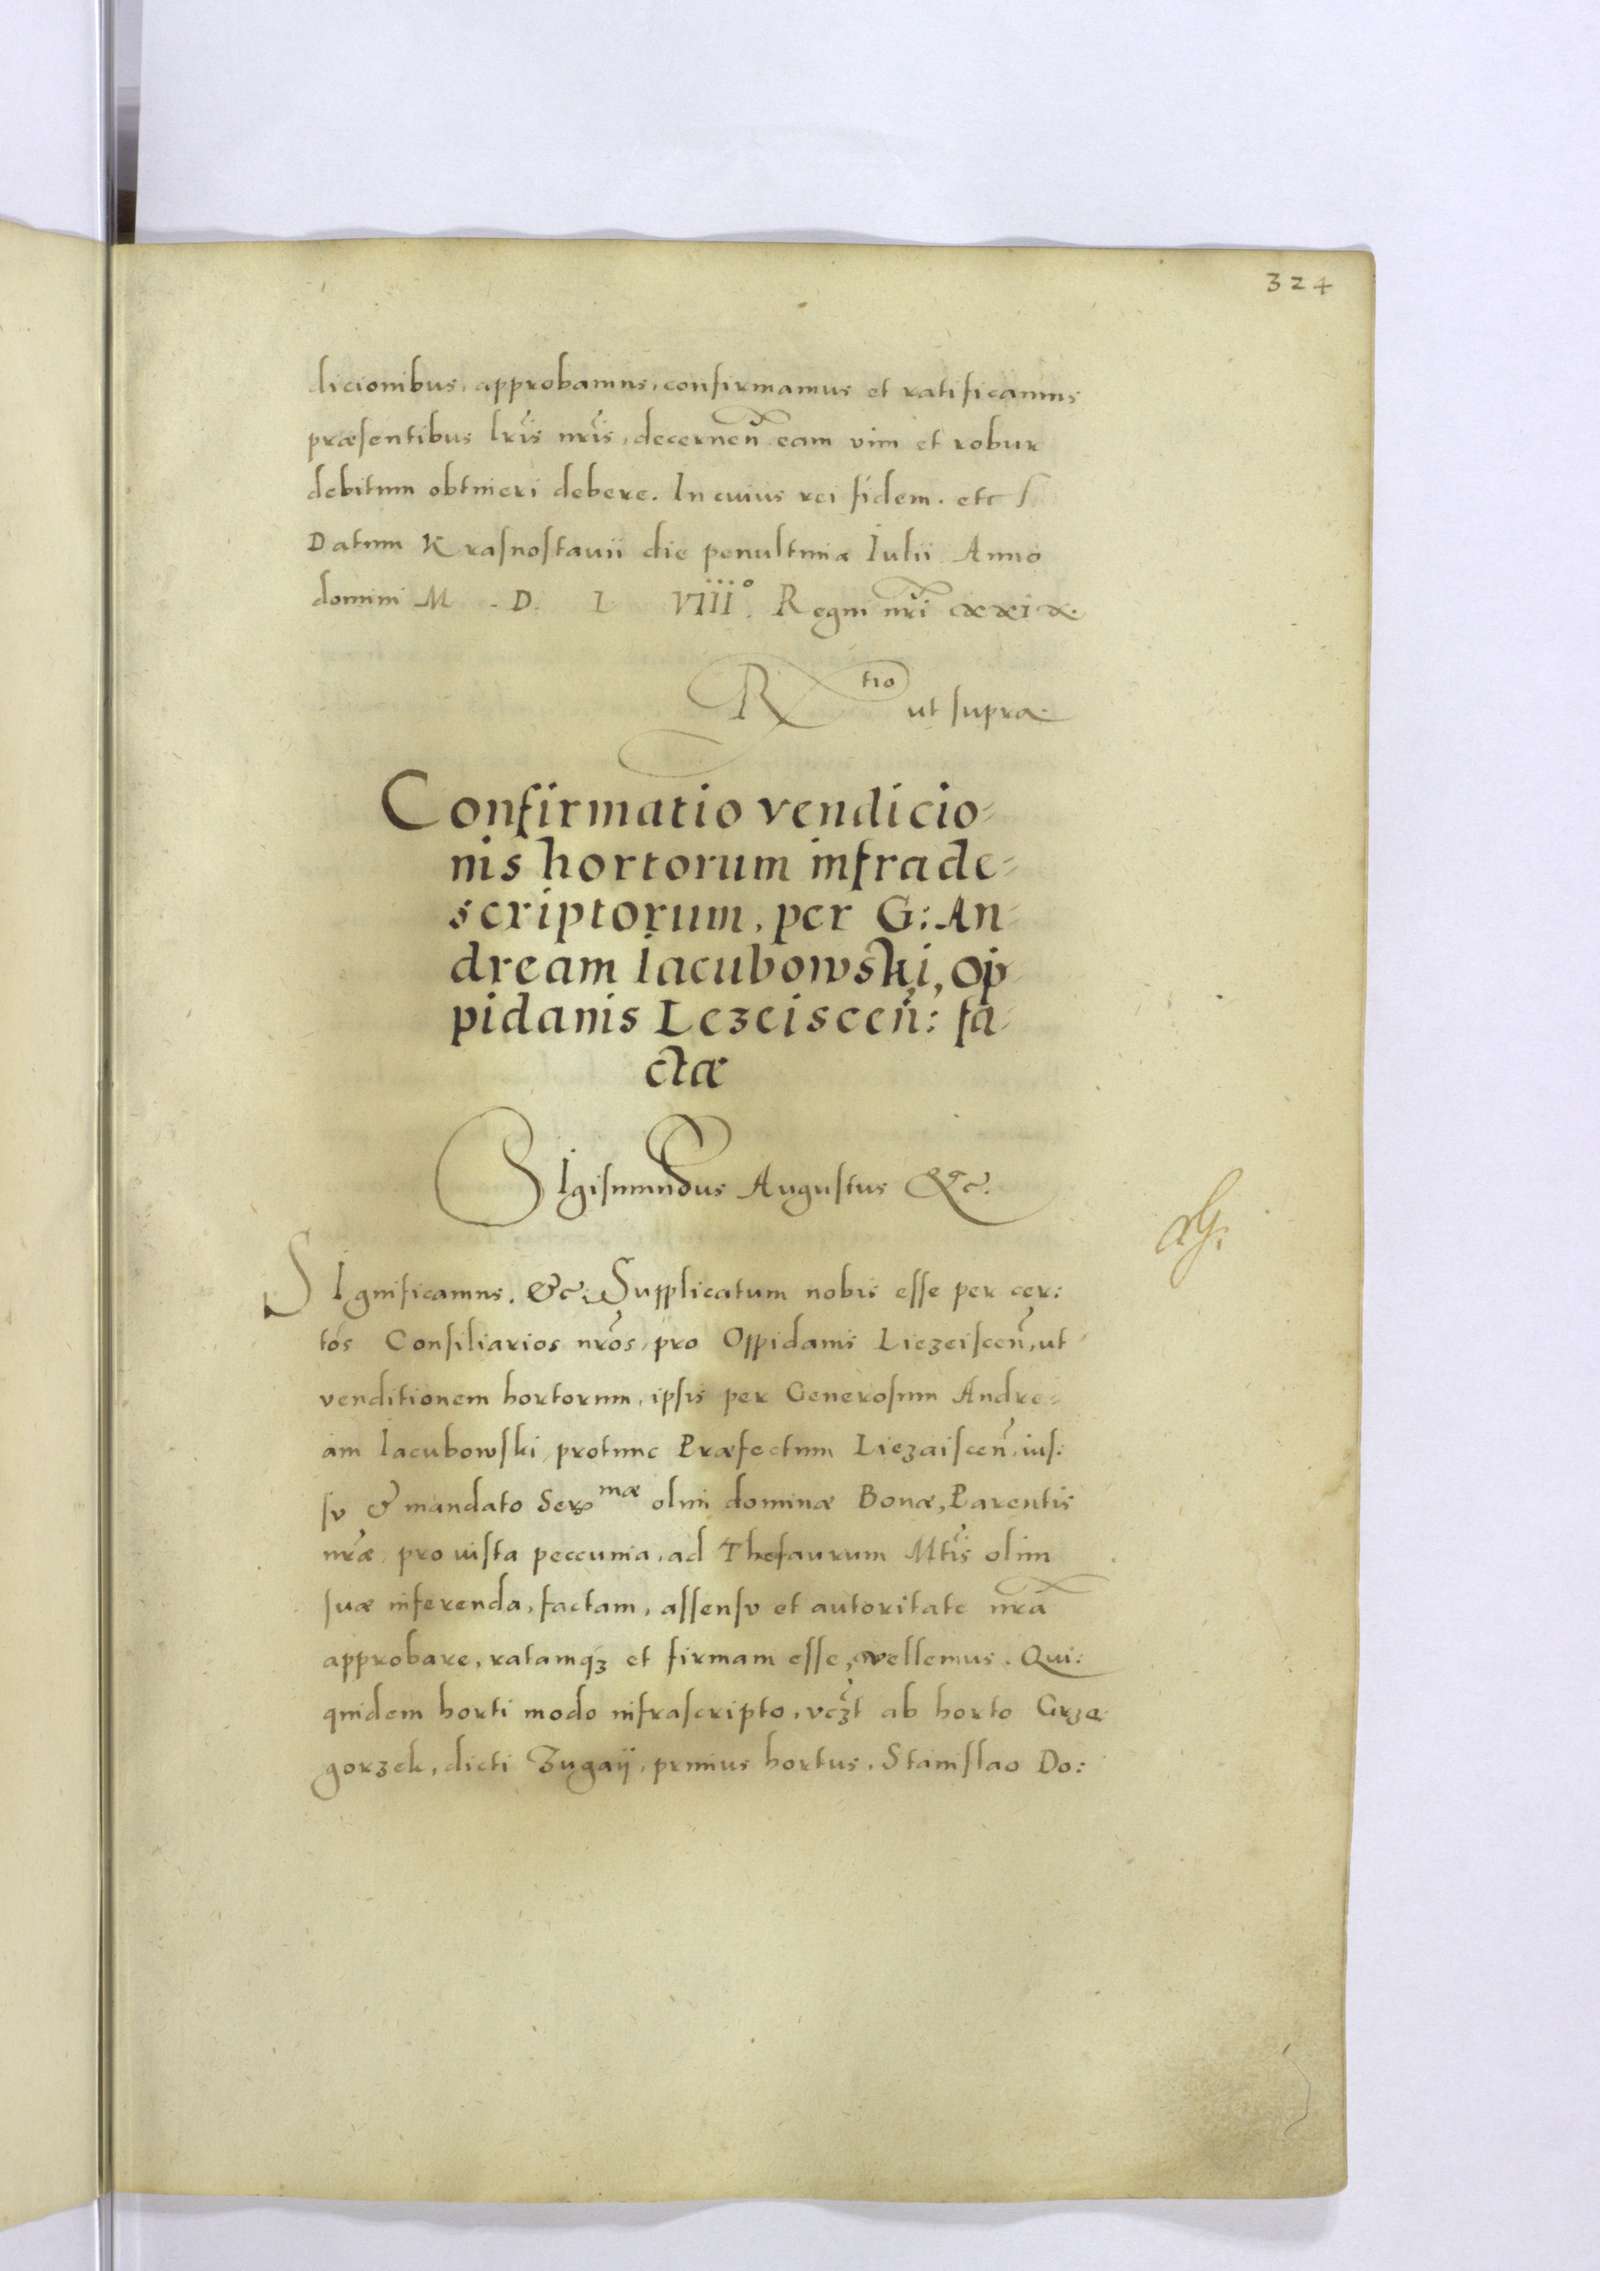 324
dicionibus, approbamus, confirmamus et ratificamus
præsentibus lris nris, decernen eam vim et robur
debitum obtineri debere. In cuius rei fidem. etc
Datum Krasnostavii die penultima Iulii Anno
domini M. D. L VIIIIº. Regni nri xxix.
Rtio ut supra
Confirmatio vendicio-
nis hortorum infrade-
scriptorum, per G: An-
dream Iacubowski, op-
pidanis Lezeiscen: fa-
ctæ
SIgismundus Augustus &c.
SIgnificamus. &c. Supplicatum nobis esse per cer:
tos Consiliarios nros, pro Oppidanis Liezeiscen, ut
venditionem hortorum, ipsis per Generosum Andre-
am Iacubowski protunc Præfectum Liezaiscen, ius:
su & mandato Ser mæ olim dominæ Bonæ, Parentis
nræ, pro iusta peccunia, ad Thesaurum Mtis olim
suæ inferenda, factam, assensu et autoritate nra
approbare, ratamqz et firmam esse, vellemus. Qui:
quidem horti modo infrascripto, vczt ab horto Grze
gorzek, dicti Zugaij, primus hortus, Stanislao Do: